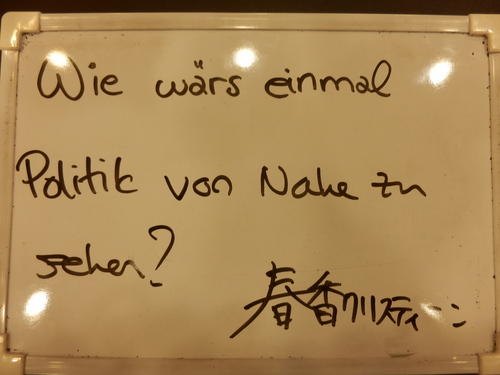 Wie wärs einmal
Politik von Nahe zu
sehen?
春香クリスティーン